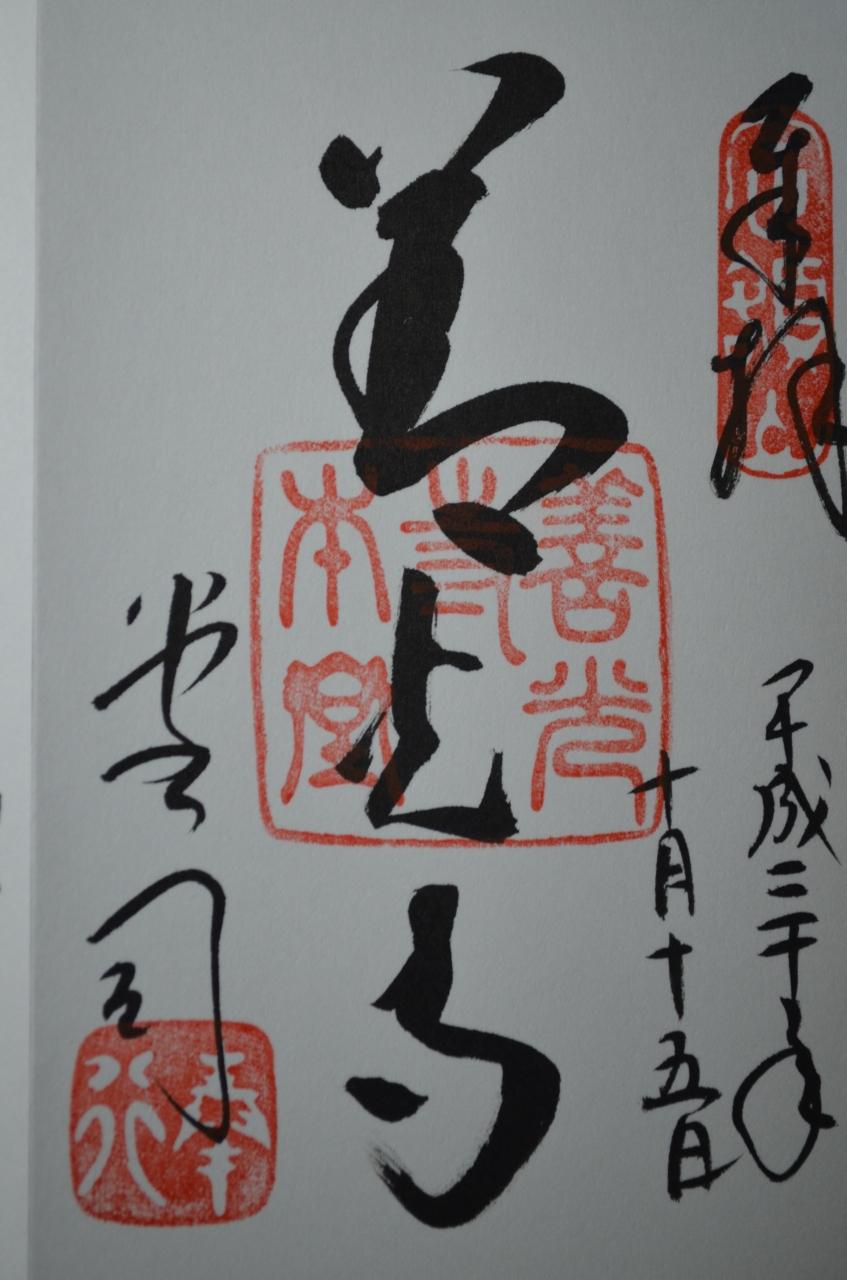 奉拝
平成二十年
十月十五日
善光寺
善光
本
堂司
奉行